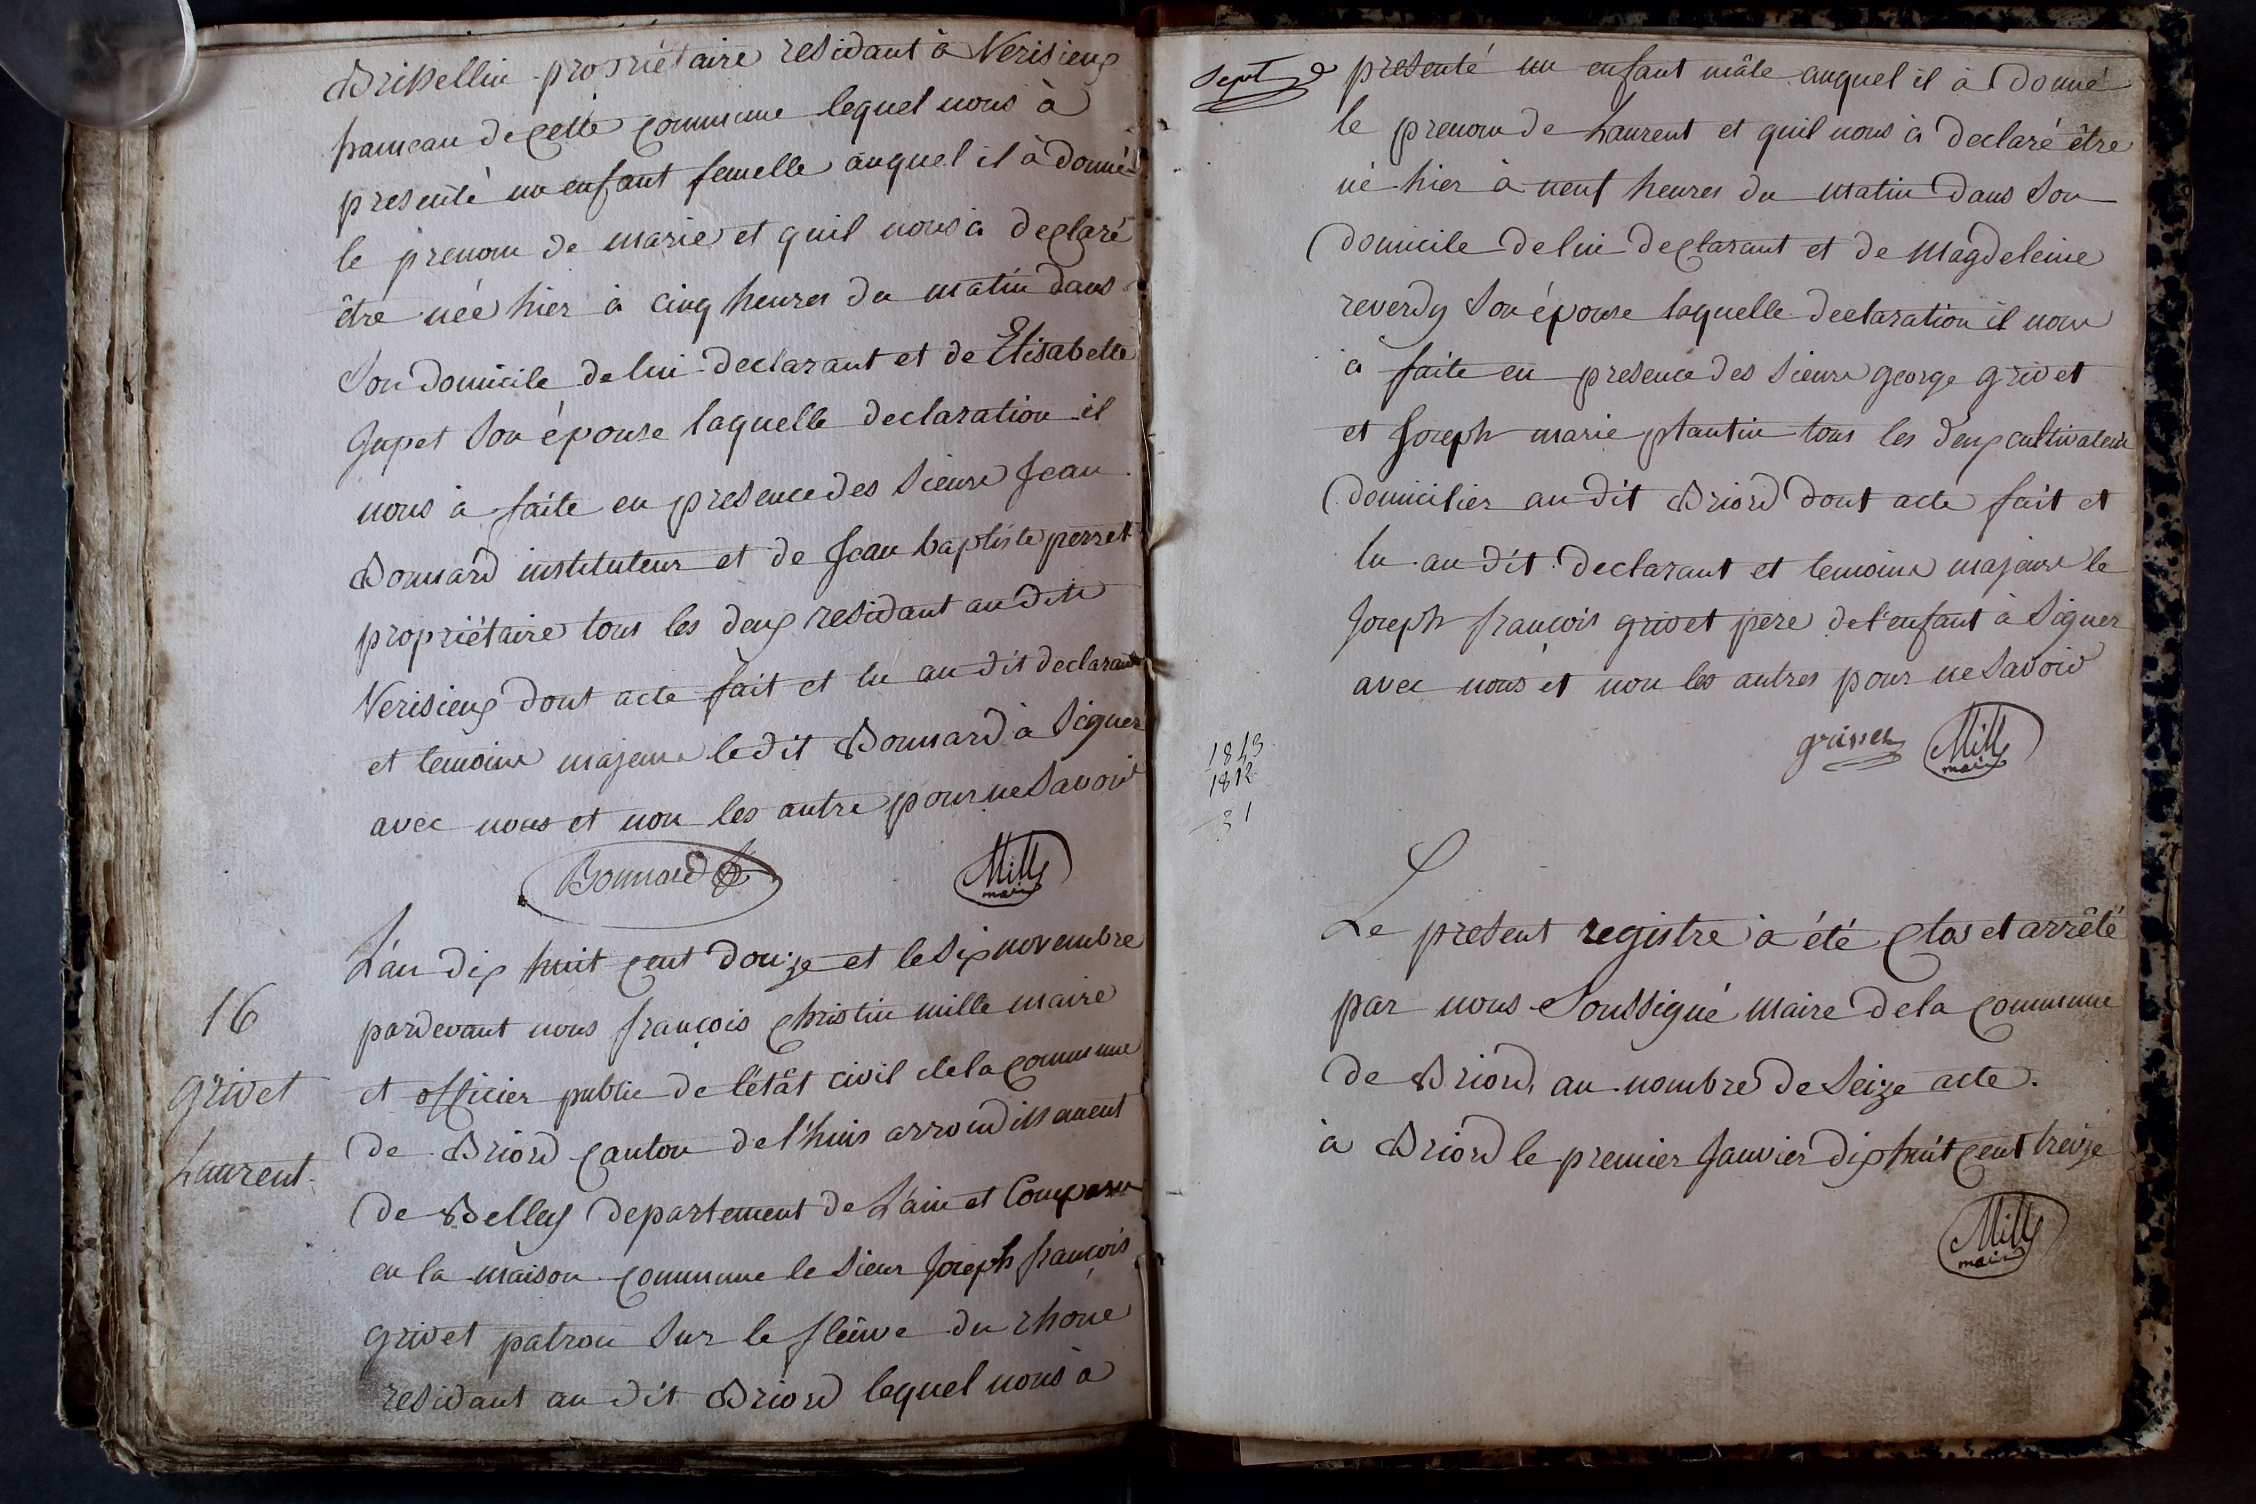 Brissellin propriétaire residant à Verisieux
hameau de cette commune lequel nous à
presenté un enfant femelle auquel il à donné
le prenom de marie et quil nous à declaré
être née hier à cinq heures du matin dans
son domicile de lui declarant et de Elisabette
Jupet son épouse laquelle declaration il
nous à faite en presence des sieurs Jean
Bonnard instituteur et de Jean baptiste perret
propriétaire tous les deux residant audite
Verisieux dont acte fait et lu au dit declarant
et temoins majeurs le dit Bonnard à signer
avec nous et non les autre pour ne savoir
Bonnard
Mille
maire
16
grivet
Laurent
L'an dix huit cent douze et le six novembre
pardevant nous françois christin mille maire
et officier public de l'étât civil de la commune
de Briord canton de l'huis arrondissement
de Belley departement de L'ain et Comparu
en la maison commune le sieur Joseph françois
grivet patron sur le fleuve du rhone
residant au dit Briord lequel nous à
Sept
presenté un enfant mâle auquel il à donné
le prenom de Laurent et quil nous à declaré être
né hier à neuf heures du matin dans son
domicile de lui declarant et de Magdeleine
reverdy son épouse laquelle declaration il nous
à faite en presence des sieurs george grivet
et Joseph marie plantin tous les deux cultivateurs
domiciliés au dit Briord dont acte fait et
lu au dit declarant et temoins majeurs le
Joseph françois grivet pere de l'enfant à signer
avec nous et non les autres pour ne savoir
grivet
Mille
maire
1843
1812
31
Le present registre à été clos et arrêté
par nous soussigné maire de la commune
de Briord, au nombre de seize acte.
à Briord le premier Janvier dix huit cent treize
Mille
maire